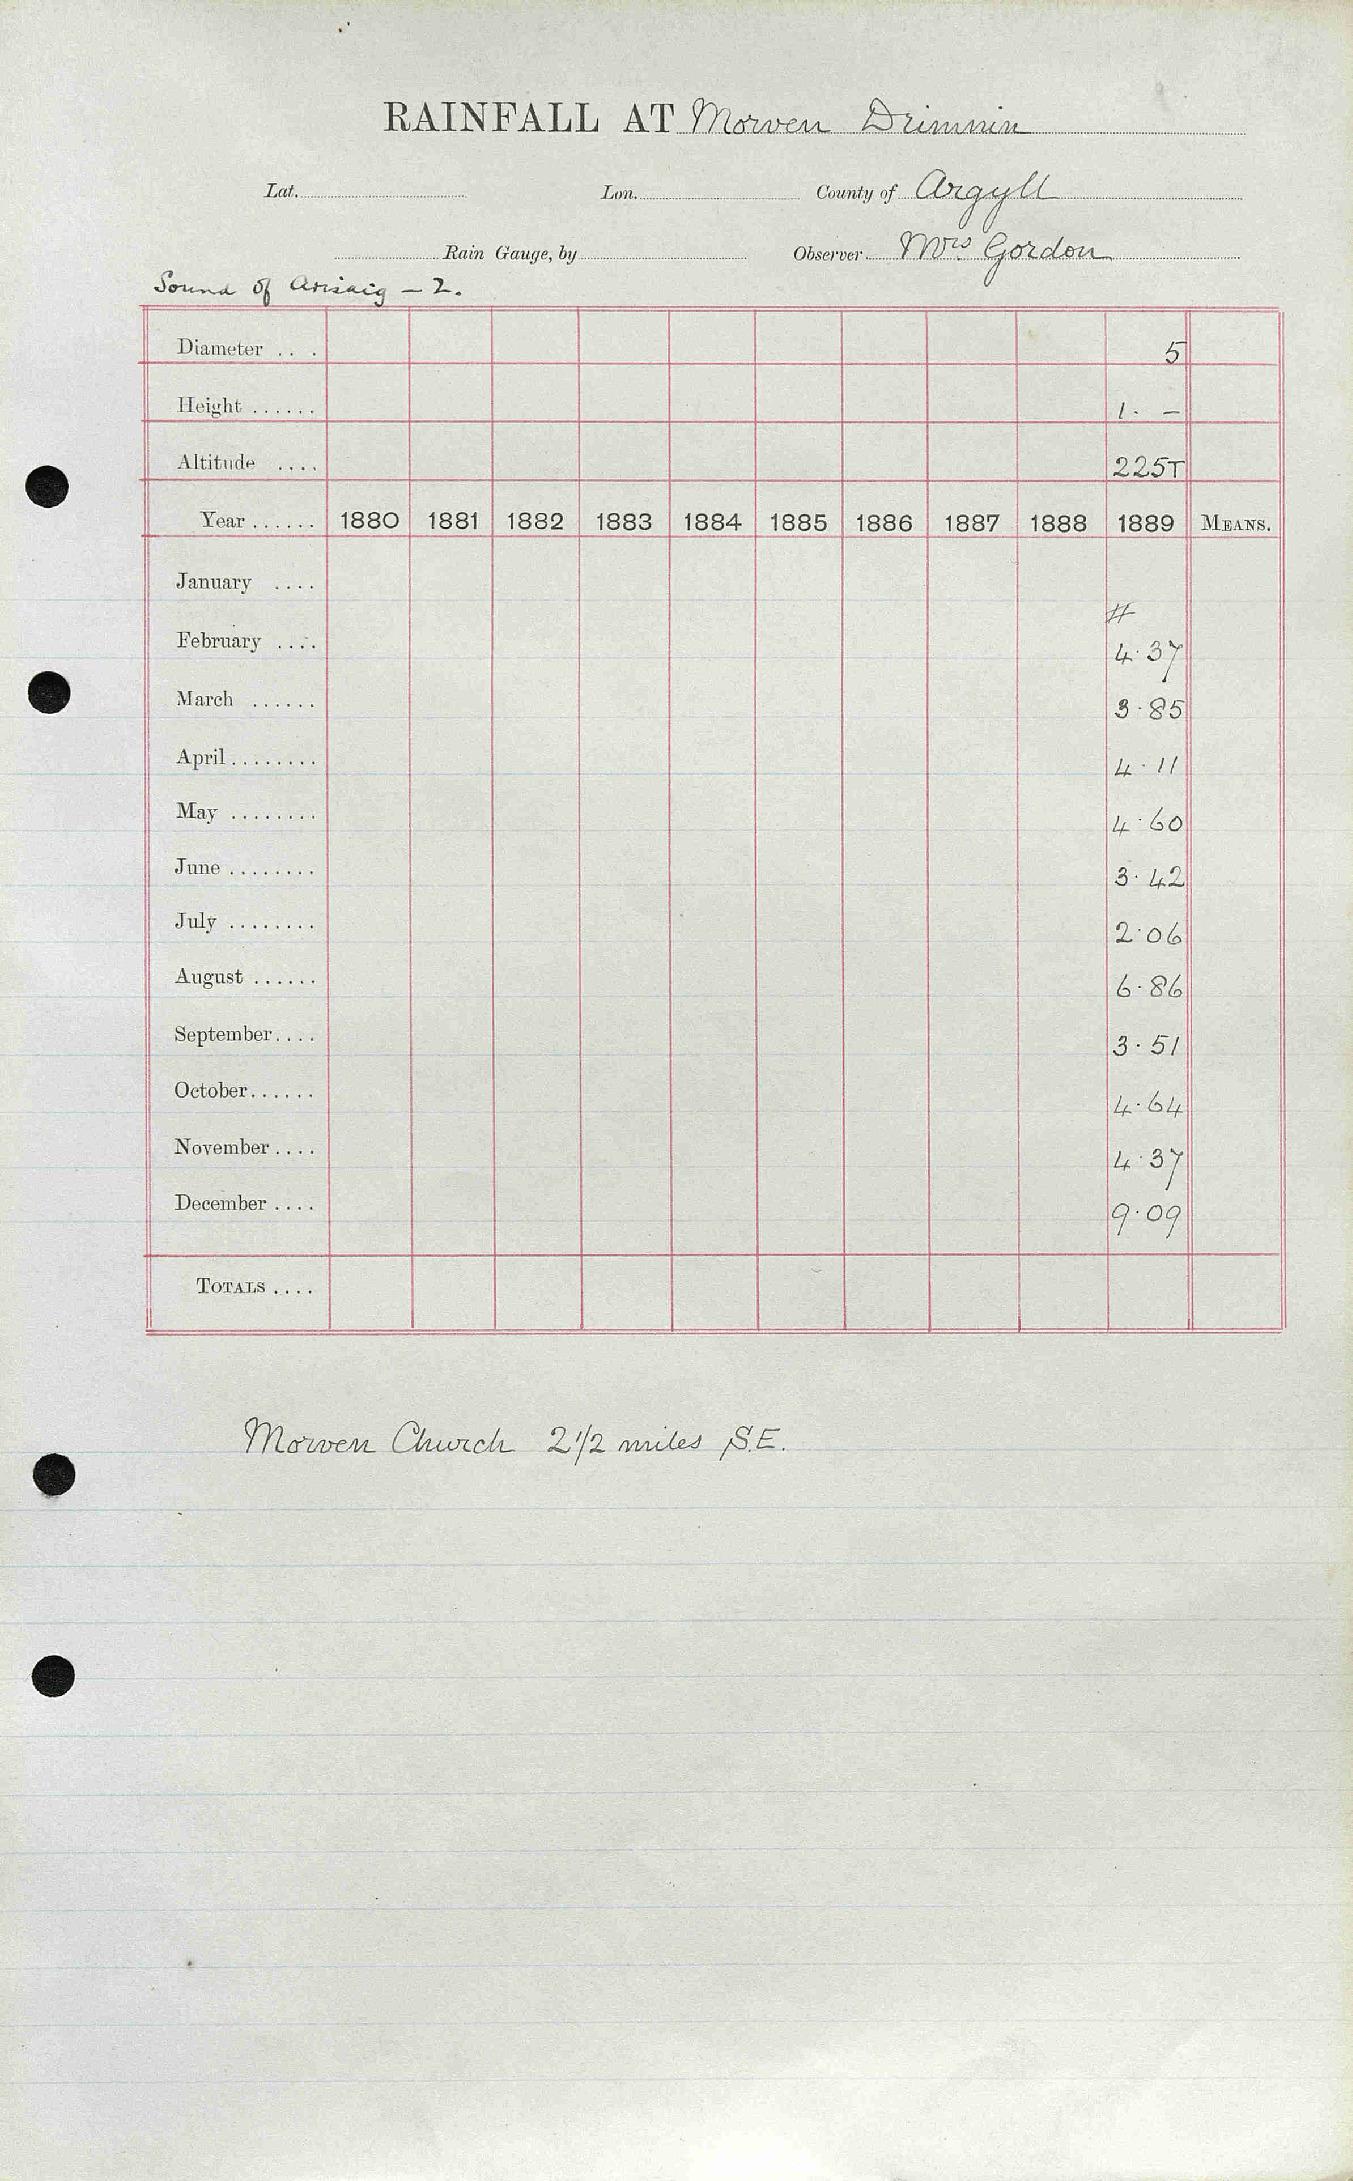 RAINFALL AT Morven Drimnin
Lat. Lon. County of Argyll
Rain Gauge, by Observer Mrs Gordon
Sound of Arisaig - 2.
Diameter . . . 5
Height ...... 1. -
Altitude .... 225T
Year ...... 1880 1881 1882 1883 1884 1885 1886 1887 1888 1889 MEANS.
January ....
#
February .... 4.37
March ...... 3.85
April ........ 4.11
May ........ 4.60
June ........ 3.42
July ........ 2.06
August ...... 6.86
September.... 3.51
October...... 4.64
November.... 4.37
December .... 9.09
TOTALS ....
Morven Church 2 1/2 miles S.E.